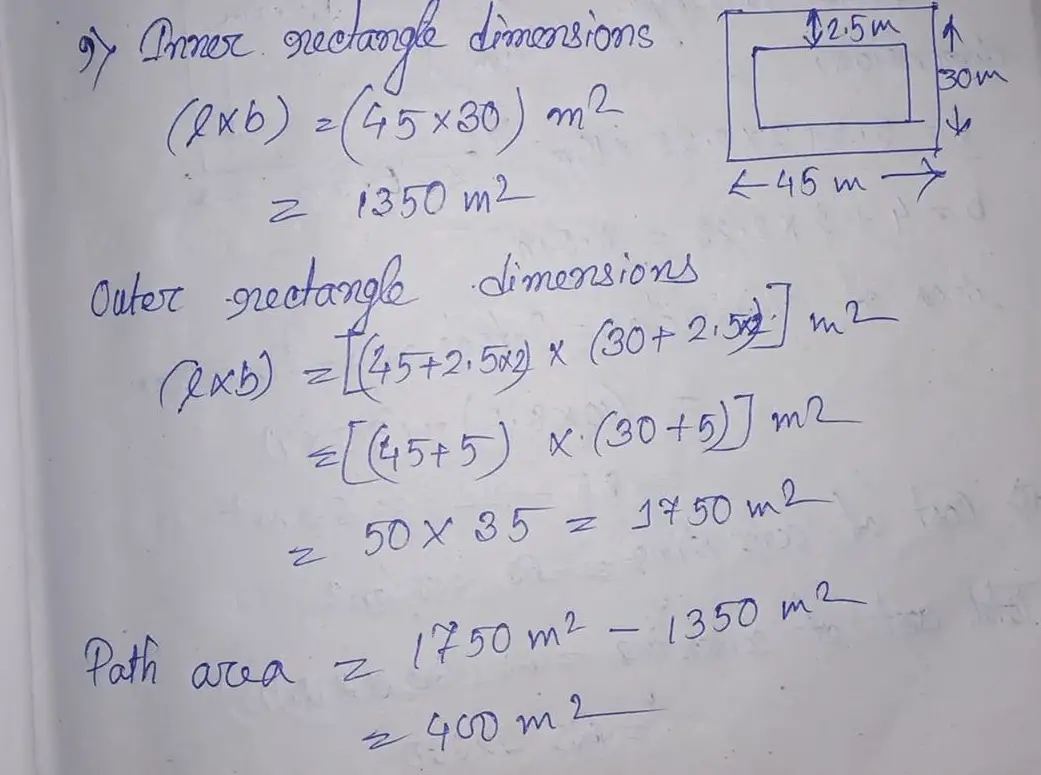 9) Inner rectangle dimensions
2.5m
30m
(l×b) = (45×30) m2
← 45 m →
= 1350 m2
Outer rectangle dimensions
(l×b) = [(45+2.5×2) × (30+2.5×2)] m2
= [(45+5) × (30+5)] m2
= 50 × 35 = 1750 m2
Path area = 1750 m2 - 1350 m2
= 400 m2